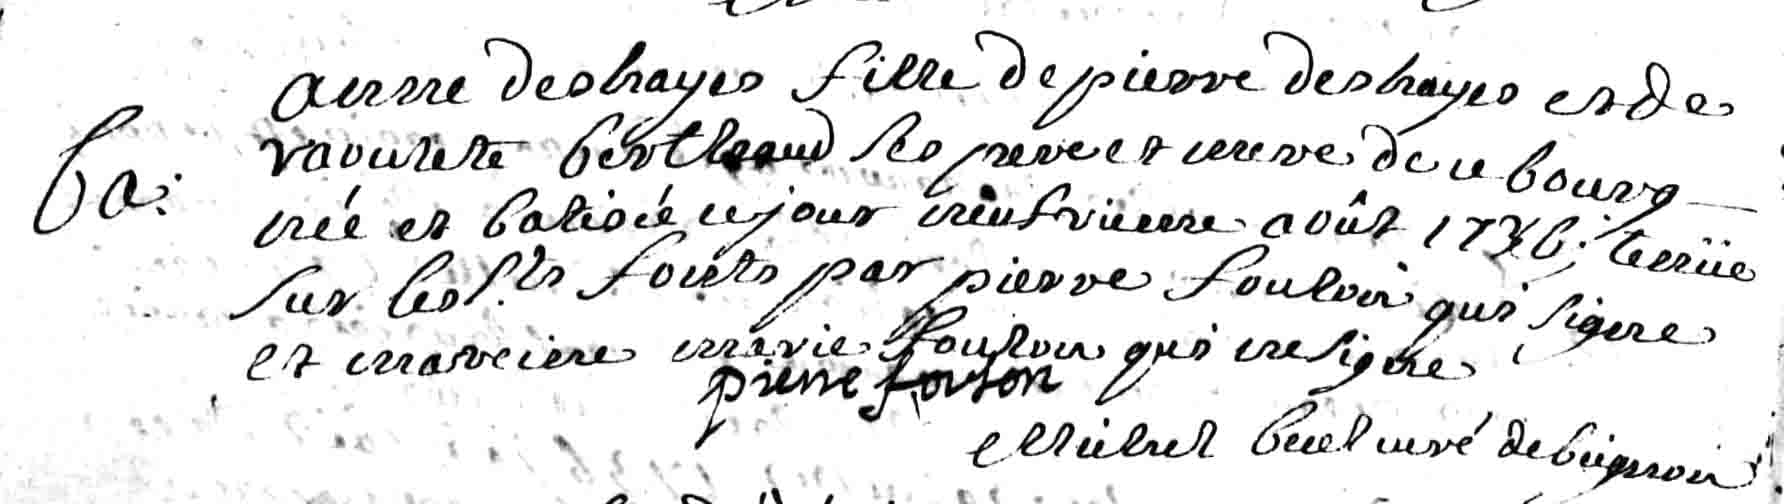 anne deshayes fille de pierre deshayes et de
ba. raoulete berthraud ses pere et mere de ce bourg
née et batisée ce jour neufvieme août 1736; tenüe
sur les s.ts fonts par pierre foulon qui signe
et marreine marie foulon qui ne signe
pierre foulon
Michel curé de